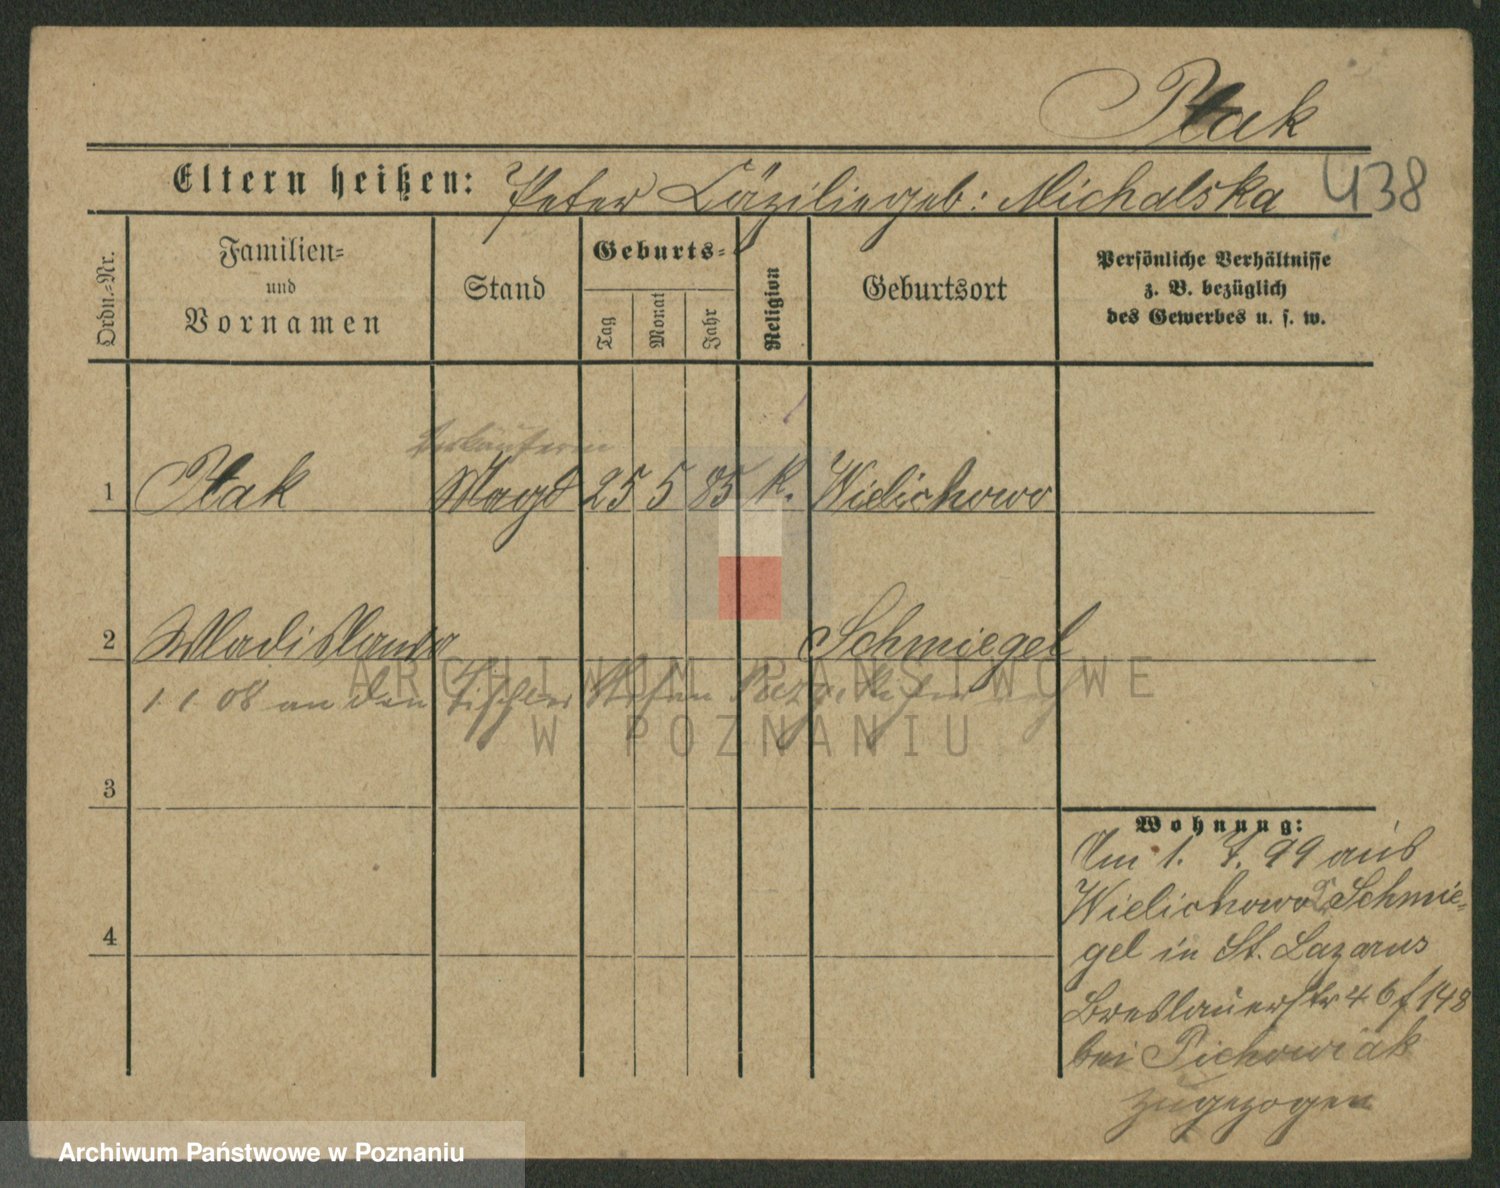 Ptak
Eltern heißen: Peter Cäzilie geb: Michalska 438
Ordn.-Nr.
Familien-
und
Vornamen
Stand
Geburts-
Tag
Monat
Jahr
Religion
Geburtsort
Persönliche Verhältnisse
z. B. bezüglich
des Gewerbes u. s. w.
Verkäuferin
1 Ptak Magd 25 5 85 K. Wielichowo
2 Wladislawa Schmiegel
1. 1. 08 an den Tischler Stefan
3
Wohnung:
Am 1. 7. 99 aus
Wielichowo Schmie-
4
gel in St. Lazarus
Breslauerstr 46 f 148
bei Pichowiak
zugezogen
ARCHIWUM PAŃSTWOWE
W POZNANIU
Archiwum Państwowe w Poznaniu